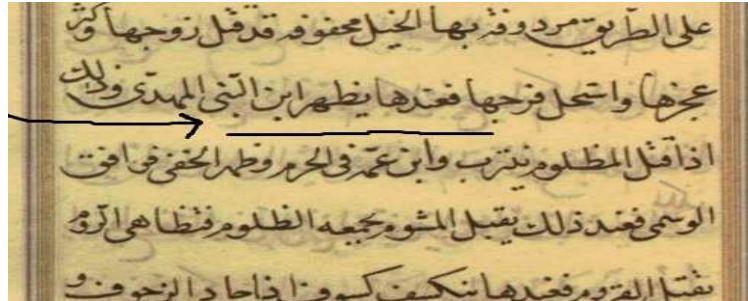 على الطريق مردوفة بها الخيل محفوفه قد قتل زوجها وكثر
عجزها واستحل فرجها فعندها يظهر ابن النبى المهدى وذلك
اذا قتل المظلوم بيثرب وابن عمه فى الحرم وظهر الخفى فوافق
الوسمى فعند ذلك يقبل المشوم بجمعه الظلوم فتظاهى الروم
بقتل القروم فعندها ينكسف كسوف اذا جا الزحوف و